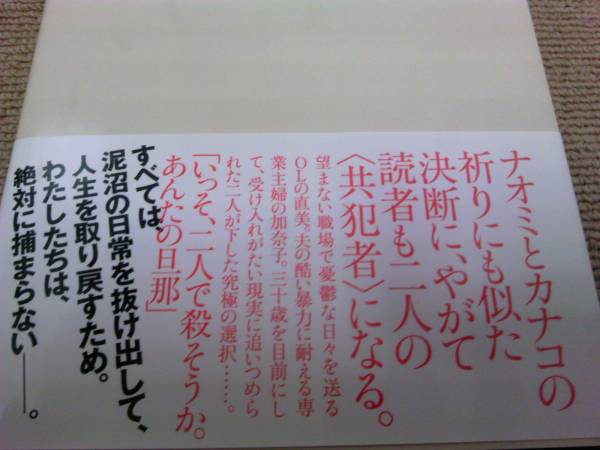 ナオミとカナコの
祈りにも似た
決断に、やがて
読者も二人の
〈共犯者〉になる。
望まない職場で憂鬱な日々を送る
OLの直美。夫の酷い暴力に耐える専
業主婦の加奈子。三十歳を目前にし
て、受け入れがたい現実に追いつめら
れた二人が下した究極の選択……。
「いっそ、二人で殺そうか。
あんたの旦那」
すべては、
泥沼の日常を抜け出して、
人生を取り戻すため。
わたしたちは、
絶対に捕まらない――。